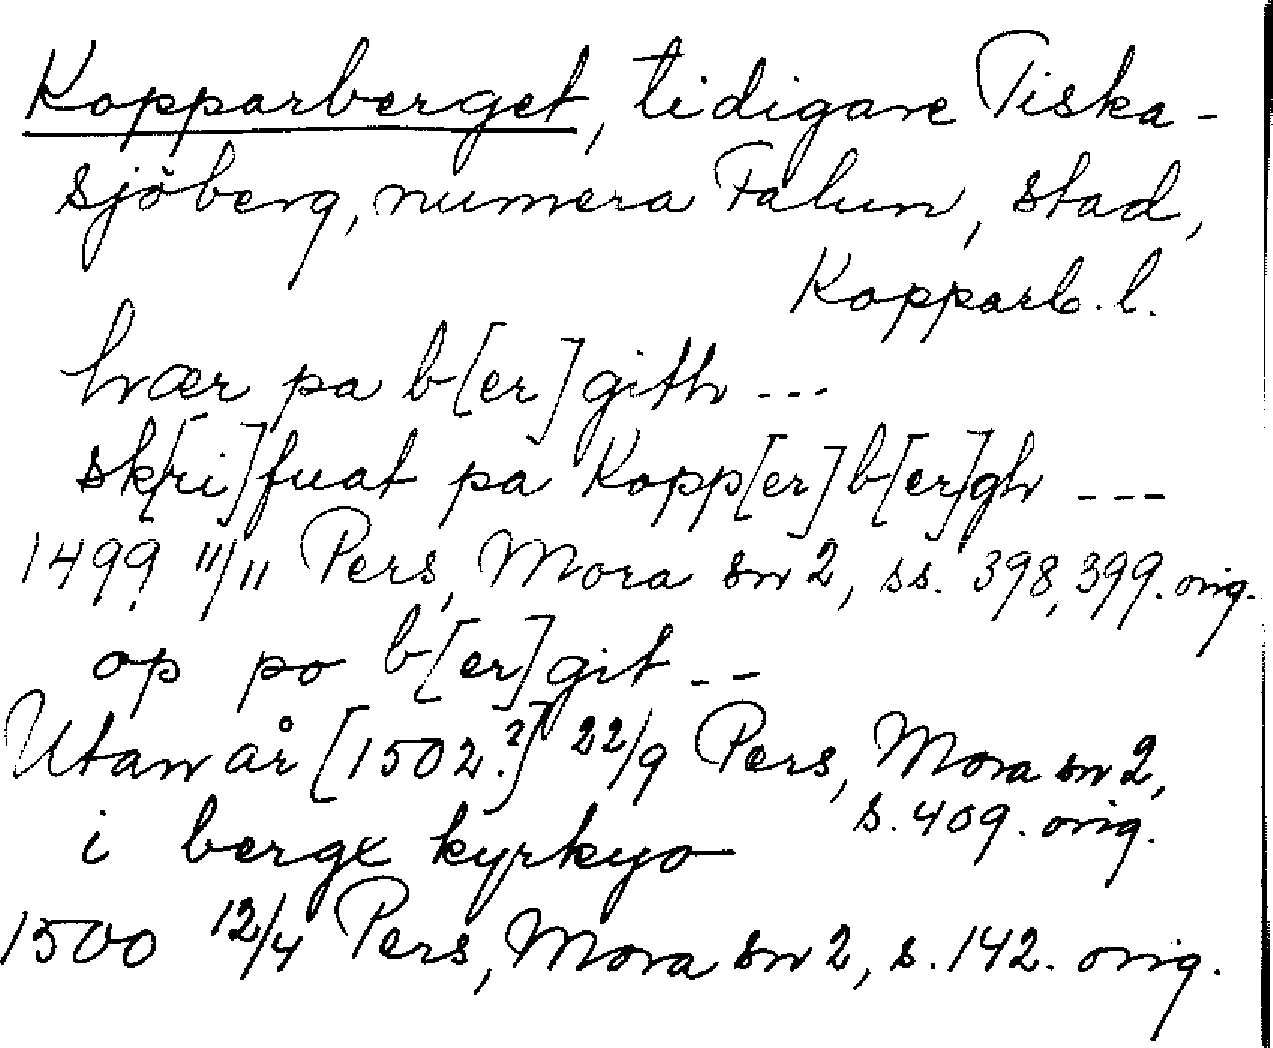 Kopparberget, tidigare Tiska-
sjöberg, numera Falun, stad,
Kopparb. l.
hvær pa b[er]gith ---
sk[ri]fuat pa Kopp[er]b[er]gh ---
1499 11/11 Pers, Mora sn 2, ss. 398, 399. orig.
op po b[er]git --
Utan år [1502?] 22/9 Pers, Mora sn 2,
s. 409. orig.
i bergx kyrkyo
1500 12/4 Pers, Mora sn 2, s. 142. orig.